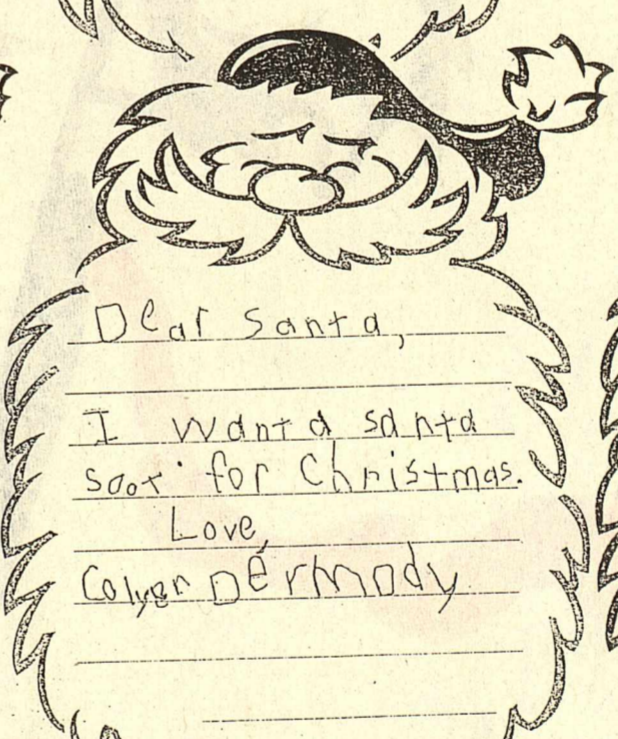 Dear Santa,
I want a santa
soot for Christmas.
Love,
Colyer Dermody